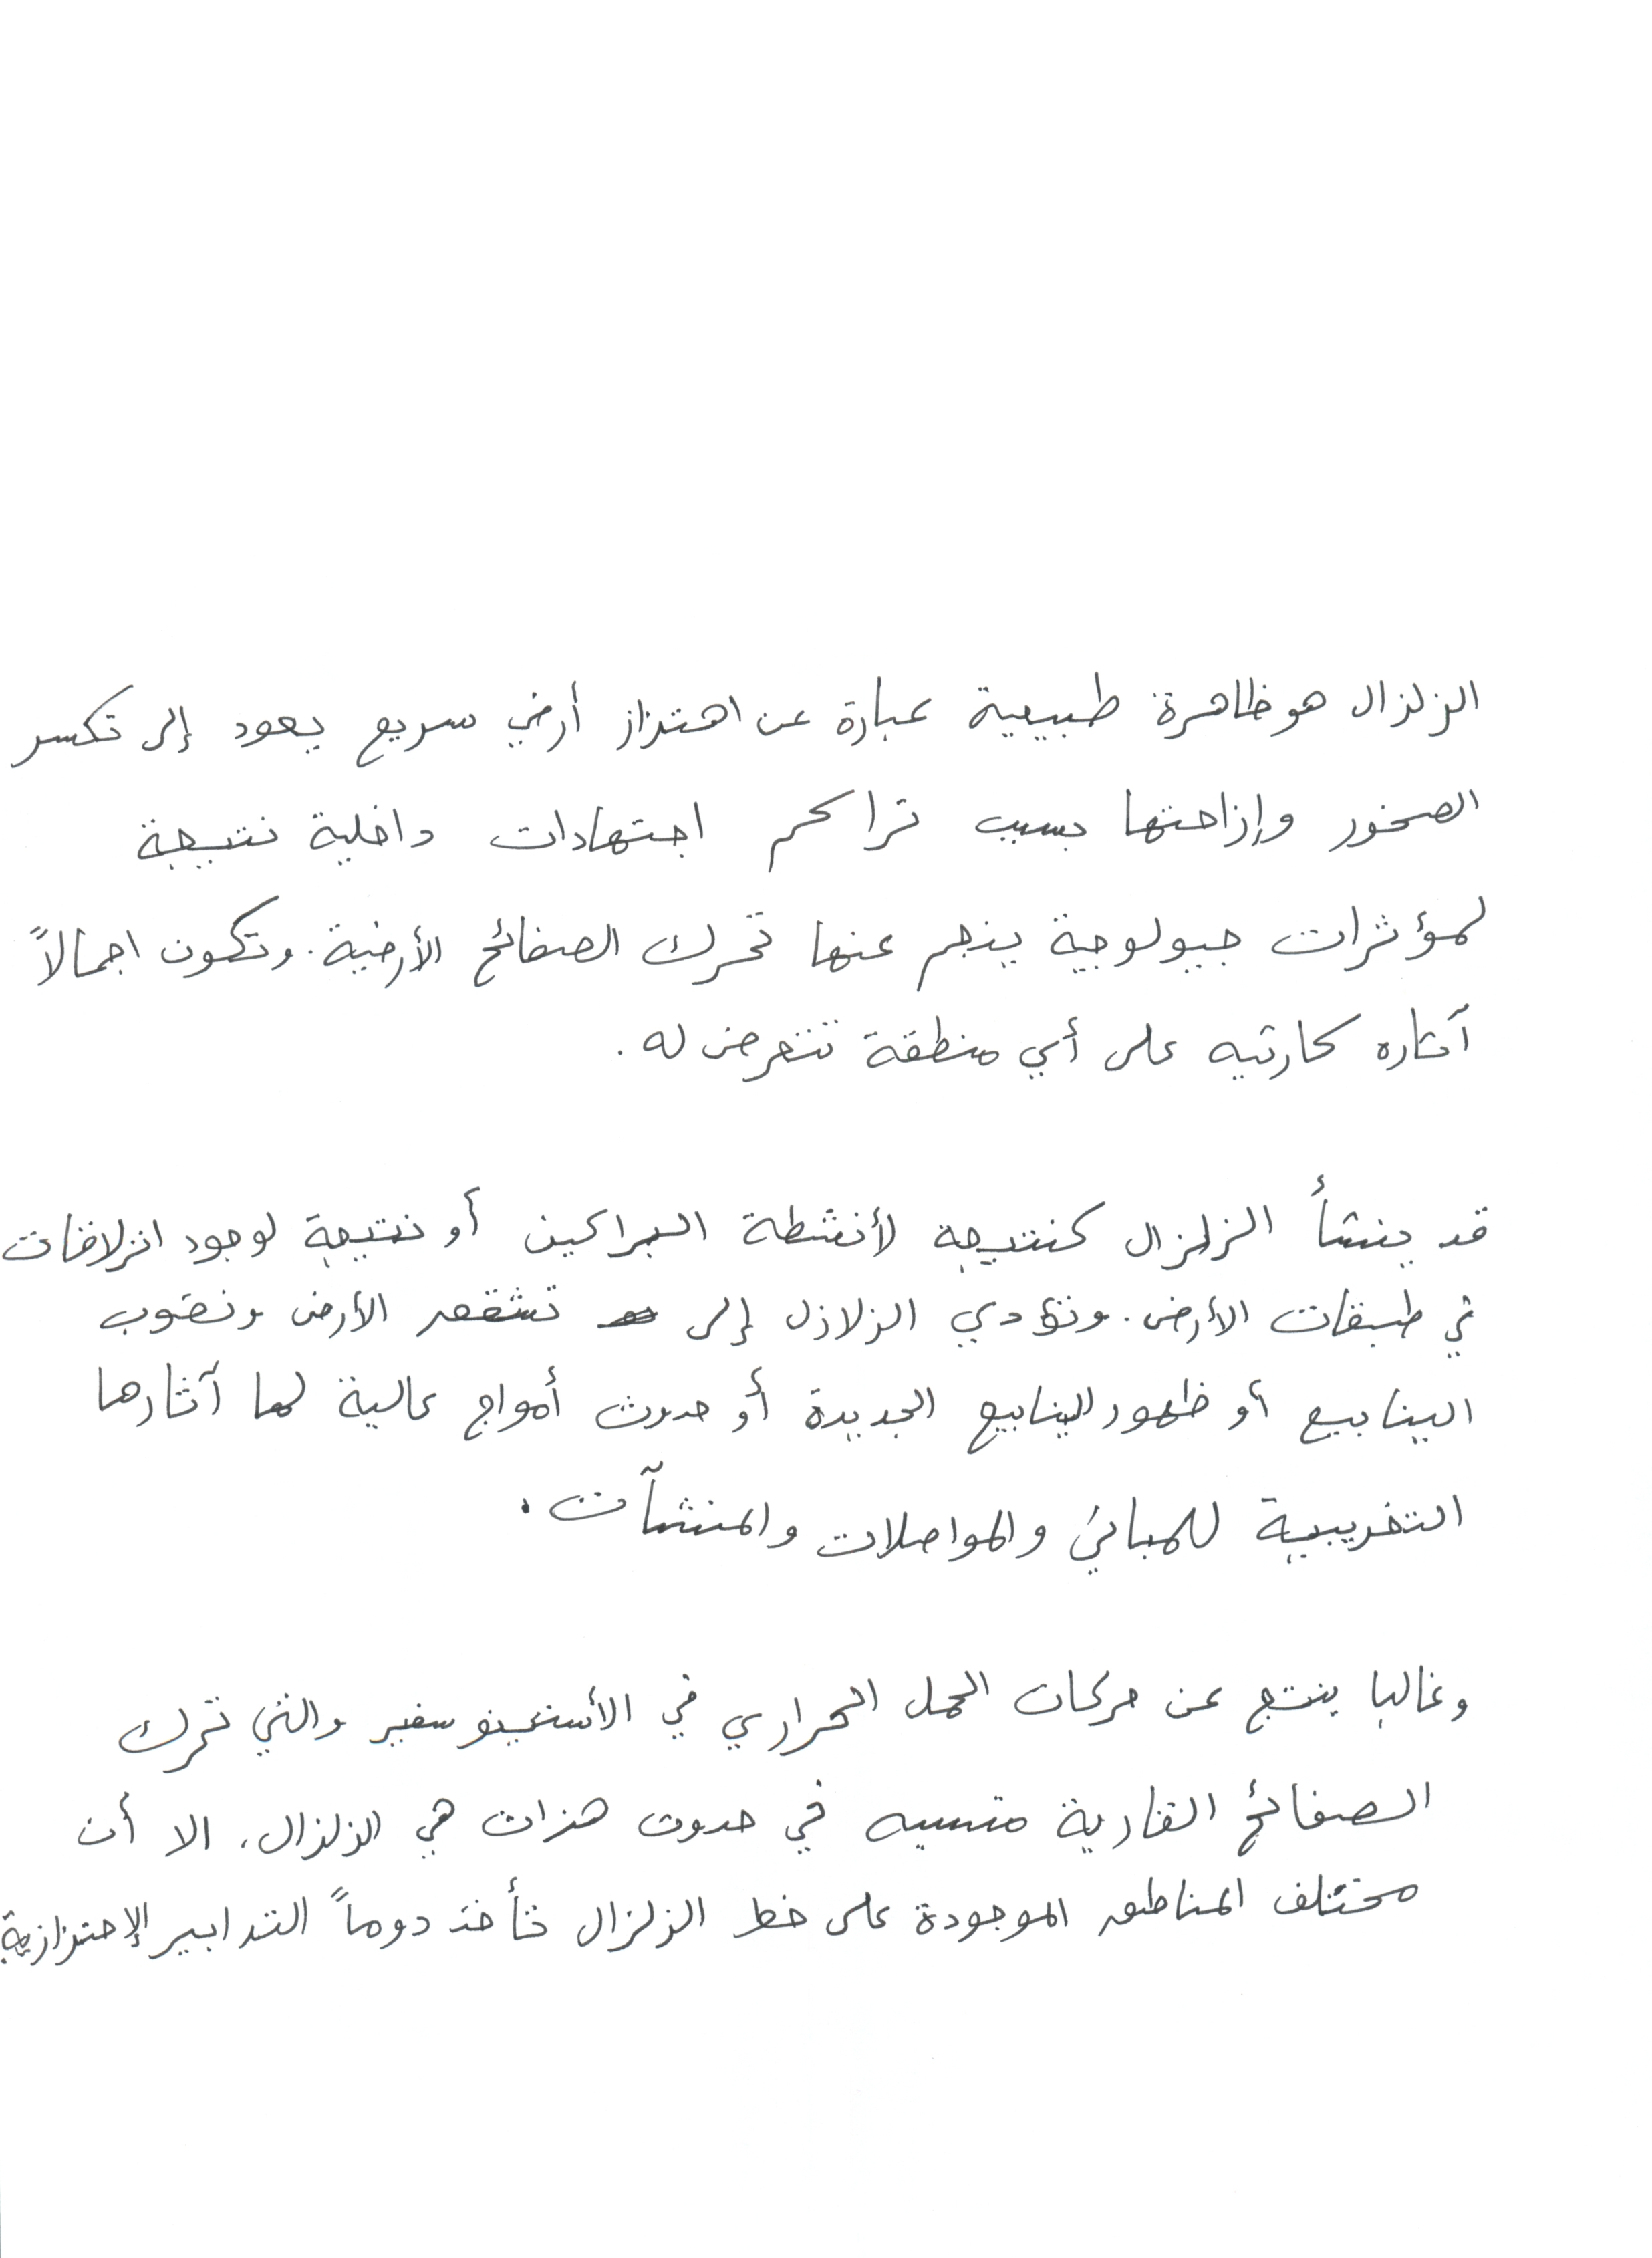 الزلزال هو ظاهرة طبيعية عبارة عن اهتزاز أرضي سريع يعود إلى تكسر
الصخور وإزاحتها بسبب تراكم اجتهادات داخلية نتيجة
لمؤثرات جيولوجية ينجم عنها تحرك الصفائح الأرضية. وتكون اجمالاً
آثاره كارثيه على أي منطقة تتعرض له.
قد ينشأ الزلزال كنتيجة لأنشطة البراكين أو نتيجة لوجود انزلاقات
في طبقات الأرض. وتؤدي الزلازل إلى تشقق الأرض ونضوب
الينابيع أو ظهور الينابيع الجديدة أو حدوث أمواج عالية لها آثارها
التخريبية للمباني والمواصلات والمنشآت.
وغالبا ينتج عن حركات الحمل الحراري في الأستينوسفير والتي تحرك
الصفائح القارية متسببه في حدوث هزات هي الزلزال، الا أن
مختلف المناطق الموجودة على خط الزلزال تأخذ دوماً التدابير الإحترازية